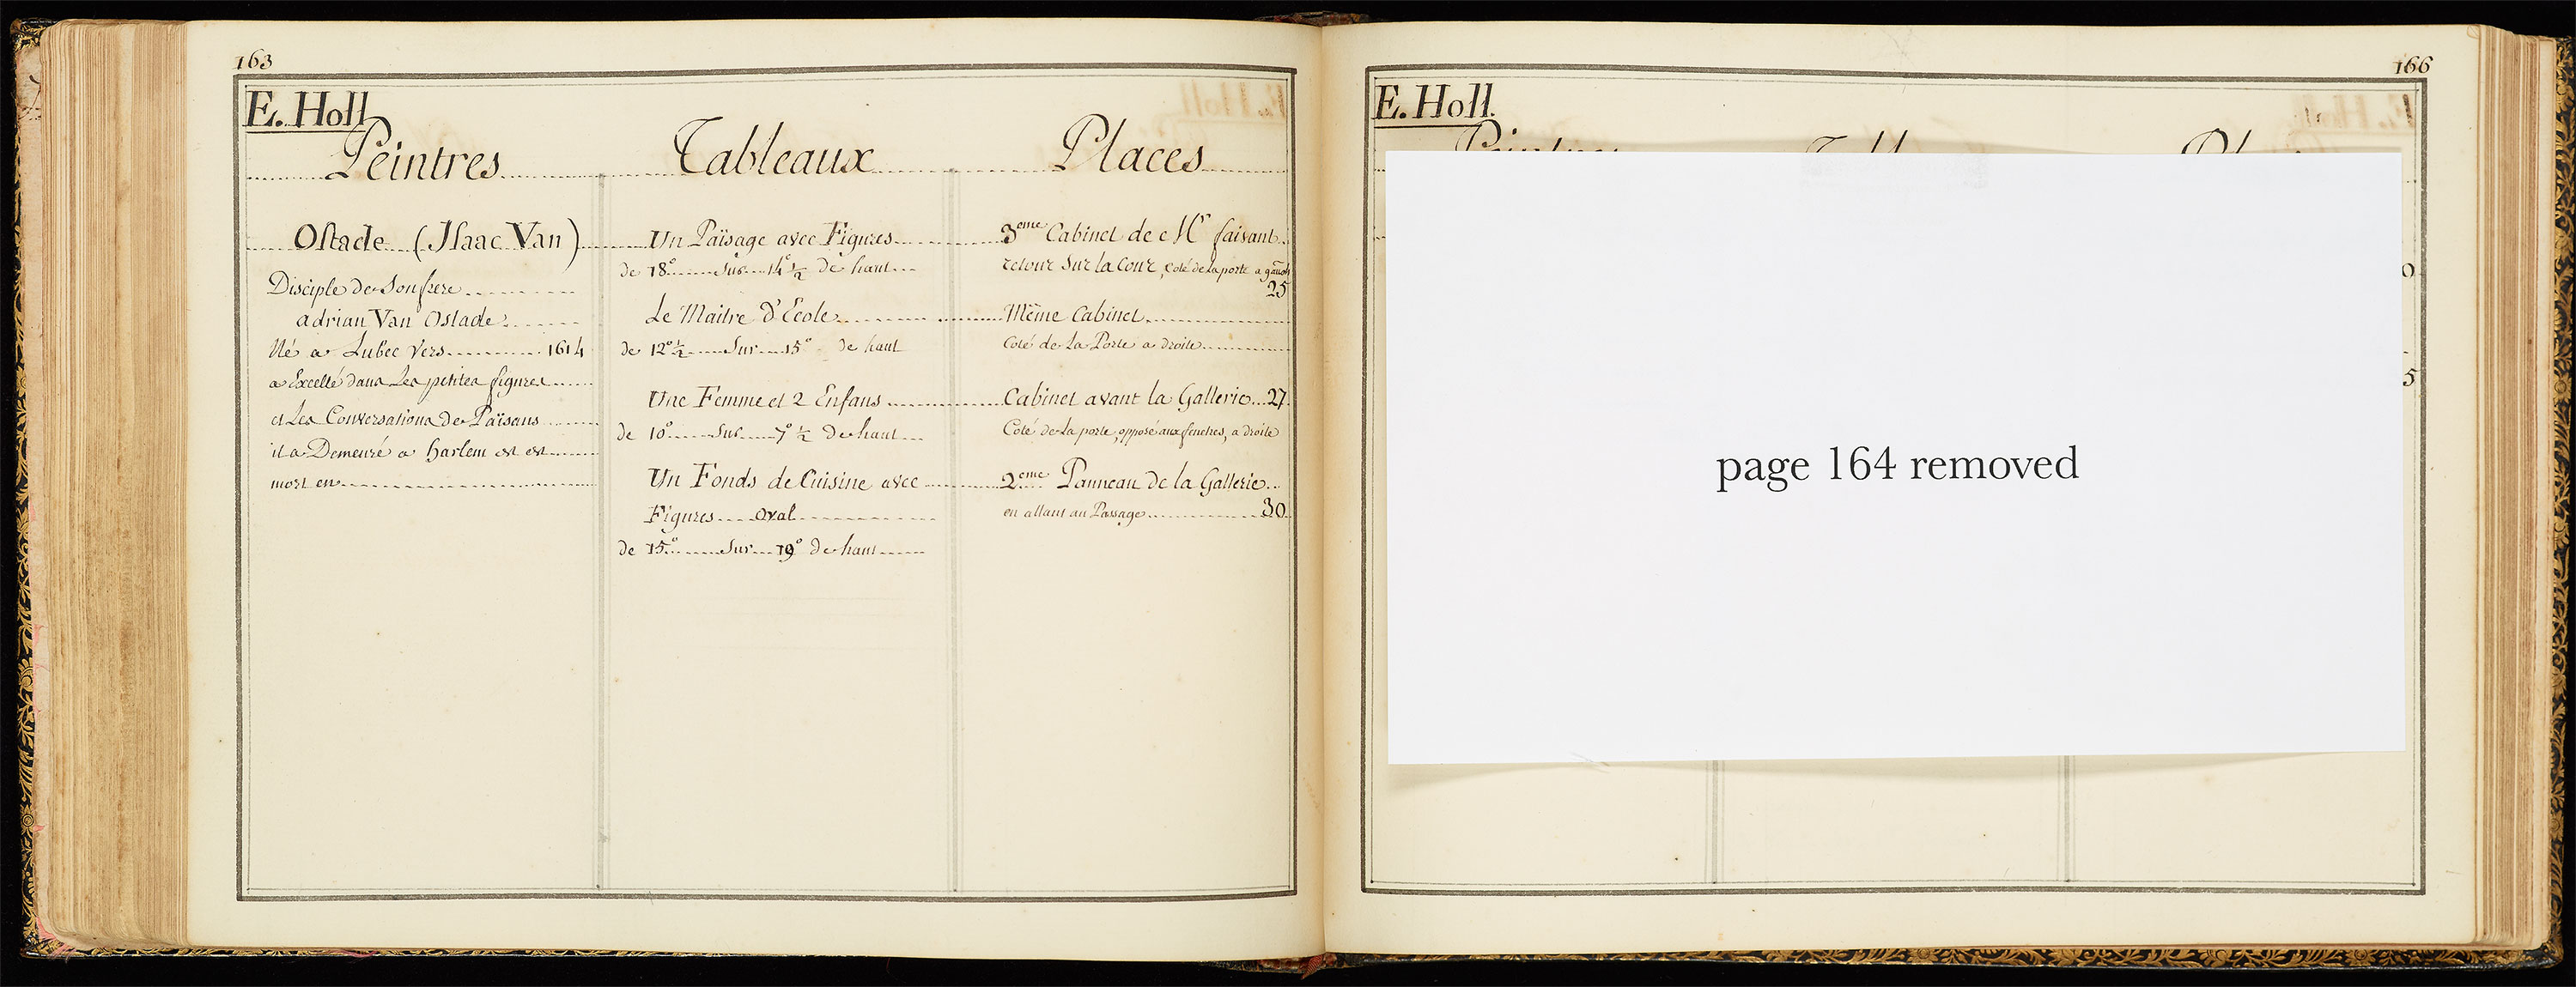 163
E. Holl
Peintres Tableaux Places
Ostade (Isaac Van)
Disciple de Son frere
adrian Van Ostade
Né a Lubec vers 1614
a Excellé dans Les petites figures
et Les Conversations de Païsans
il a Demeuré a harlem et est
mort en
Un Païsage avec Figures
de 18° Sur 14° ½ de haut
Le Maitre d'Ecole
de 12° ½ Sur 15° de haut
Une Femme et 2 Enfans
de 10° Sur 7° ½ de haut
Un Fonds de Cuisine avec
Figures Oval
de 15° Sur 19° de haut
3eme Cabinet de Mr faisant
retour Sur la Cour, Coté de La porte a gauch
25
Même Cabinet
Coté de La Porte a droite
Cabinet avant la Gallerie 27
Coté de La porte, opposé aux fenetres, a droite
2eme Panneau de la Gallerie
en allant au Passage 30
166
E. Holl.
page 164 removed